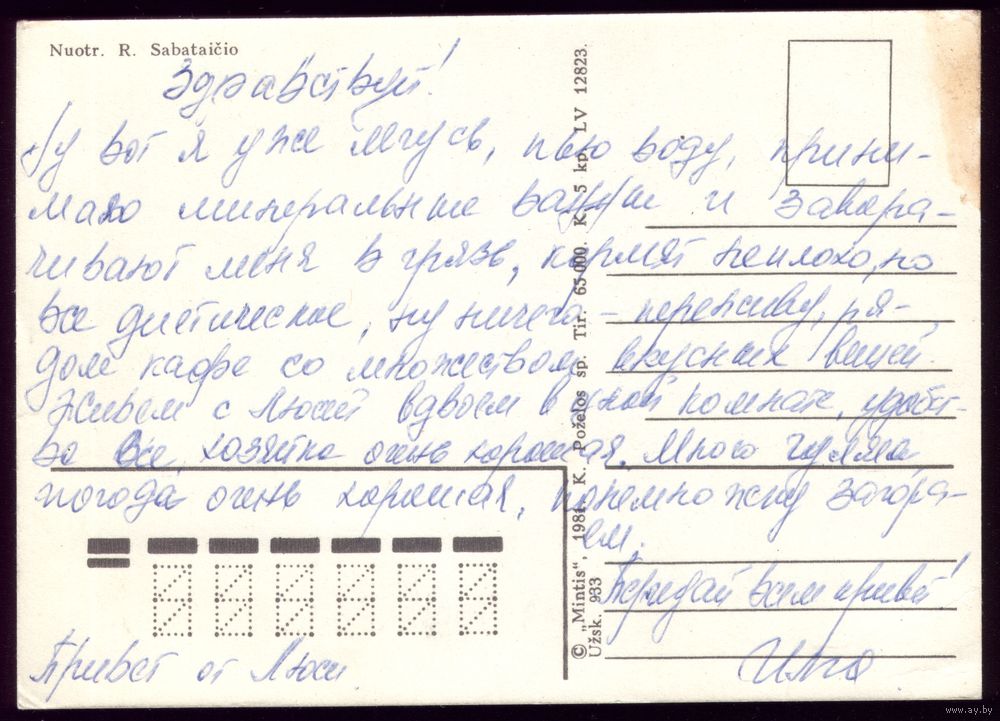 Nuotr. R. Sabataičio
Здравствуй!
Ну вот я уже лечусь, пью воду, прини-
маю минеральные ванны и завора-
чивают меня в грязь, кормят неплохо, но
все диетическое, ну ничего - переживу, ря-
дом кафе со множеством вкусных вещей.
Живем с Люсей вдвоем в одной комнате, удобст-
во все, хозяйка очень хорошая. Много гуляем
погода очень хорошая, понемножку загора-
ем.
Передай всем привет!
Привет от Люси
© „Mintis“, 1981. K. Poželos sp. Tir. 65 000. K. 5 kp. LV 12823.
Užsk. 933
www.ay.by